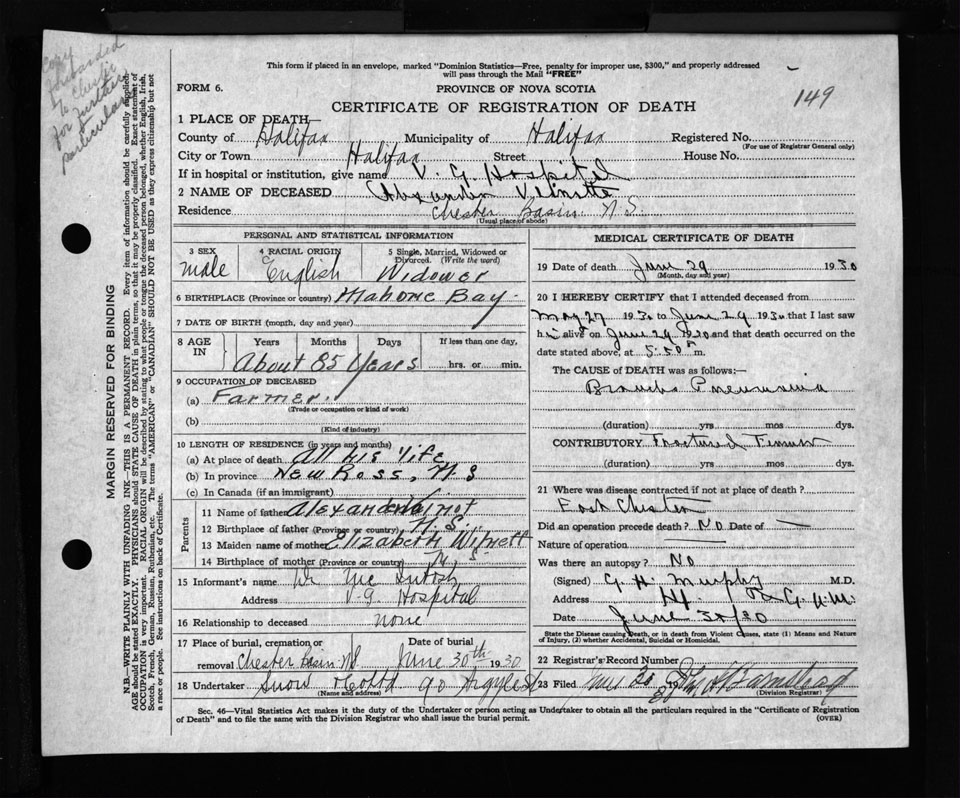 copy
forwarded
to Chester
for further
particulars
This form if placed in an envelope, marked "Dominion Statistics—Free, penalty for improper use, $300," and properly addressed
will pass through the Mail "FREE"
FORM 6.
PROVINCE OF NOVA SCOTIA
149
CERTIFICATE OF REGISTRATION OF DEATH
1 PLACE OF DEATH—
County of Halifax Municipality of Halifax Registered No.
(For use of Registrar General only)
City or Town Halifax Street House No.
If in hospital or institution, give name V. G. Hospital
2 NAME OF DECEASED Alexander
Residence Chester Basin N S.
(Usual place of abode)
MARGIN RESERVED FOR BINDING
N.B.—WRITE PLAINLY WITH UNFADING INK—THIS IS A PERMANENT RECORD. Every item of information should be carefully supplied.
AGE should be stated EXACTLY. PHYSICIANS should STATE CAUSE OF DEATH in plain terms, so that it may be properly classified. Exact statement of
OCCUPATION is very important. RACIAL ORIGIN will be described by stating what people or tongue the deceased person belonged, whether English, Irish,
Scotch, French, German, Russian, Ruthenian, etc. The terms "AMERICAN" or "CANADIAN" SHOULD NOT BE USED as they express citizenship but not
a race or people. See instructions on back of Certificate.
PERSONAL AND STATISTICAL INFORMATION
3 SEX
male
4 RACIAL ORIGIN
English
5 Single, Married, Widowed or
Divorced. (Write the word)
Widower
6 BIRTHPLACE (Province or country) Mahone Bay
7 DATE OF BIRTH (month, day and year)
8 AGE
IN
Years Months Days
If less than one day,
About 85 Years hrs. or min.
9 OCCUPATION OF DECEASED
(a) Farmer.
(Trade or occupation or kind of work)
(b)
(Kind of industry)
10 LENGTH OF RESIDENCE (in years and months)
(a) At place of death All his life
(b) In province New Ross, N.S
(c) In Canada (if an immigrant)
Parents
11 Name of father Alexander
12 Birthplace of father (Province or country) N.S.
13 Maiden name of mother Elizabeth
14 Birthplace of mother N S
15 Informant's name Dr McIntosh
Address V.G. Hospital
16 Relationship to deceased none
17 Place of burial, cremation or
removal Chester Basin NS
Date of burial
June 30th 1930
18 Undertaker Snow 90 Argyle St
(Name and address)
MEDICAL CERTIFICATE OF DEATH
19 Date of death June 29 1930
(Month, day and year)
20 I HEREBY CERTIFY that I attended deceased from
May 27 1930 to June 29 1930 that I last saw
him alive on June 29 1930 and that death occurred on
date stated above, at 5:50 m.
The CAUSE OF DEATH was as follows:—
Broncho Pneumonia
(duration) yrs mos ds.
CONTRIBUTORY Fractured Femur
(duration) yrs mos ds.
21 Where was disease contracted if not at place of death?
East Chester
Did an operation precede death? NO Date of —
Nature of operation —
Was there an autopsy? NO
(Signed) G. H. Murphy M.D.
Address
Date June 30/30
State the Disease causing Death, or in death from Violent Causes, state (1) Means and Nature
of Injury, (2) whether Accidental, Suicidal or Homicidal.
22 Registrar's Record Number
23 Filed
(Division Registrar)
Sec. 46—Vital Statistics Act makes it the duty of the Undertaker or person acting as Undertaker to obtain all the particulars required in the "Certificate of Registration
of Death" and to file the same with the Division Registrar who shall issue the burial permit.
(OVER)